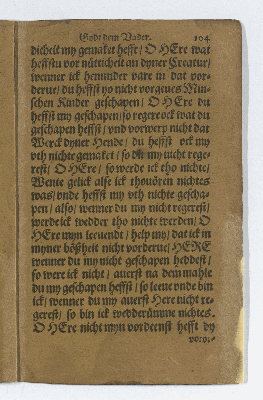 Godt dem Vader. 104
dicheit my gemaket hefft / O HEre wat
heffstu vor nütticheit an dyner Creatur /
wenner ick henunder vare in dat vor-
derue / du heffst yo nicht vorgeues Min-
schen Kinder geschapen / O HEre du
heffst my geschapen / so regere ock wat du
geschapen heffst / vnd vorwerp nicht dat
Werck dyner Hende / du heffst ock my
vth nichte gemaket / so du my nicht rege-
rest / O HEre / so werde ick tho nichte /
Wente gelick alse ick thouören nichtes
was / vnde heffst my vth nichte gescha-
pen / also / wenner du my nicht regerest /
werde ick wedder tho nichte werden / O
HEre myn leeuendt / help my / dat ick in
myner bößheit nicht vorderue / HERE
wenner du my nicht geschapen heddest /
so were ick nicht / auerst na dem mahle
du my geschapen heffst / so leeue vnde bin
ick / wenner du my auerst Here nicht re-
gerest / so bin ick wedderümme nichtes.
O HEre nicht myn vordeenst hefft dy